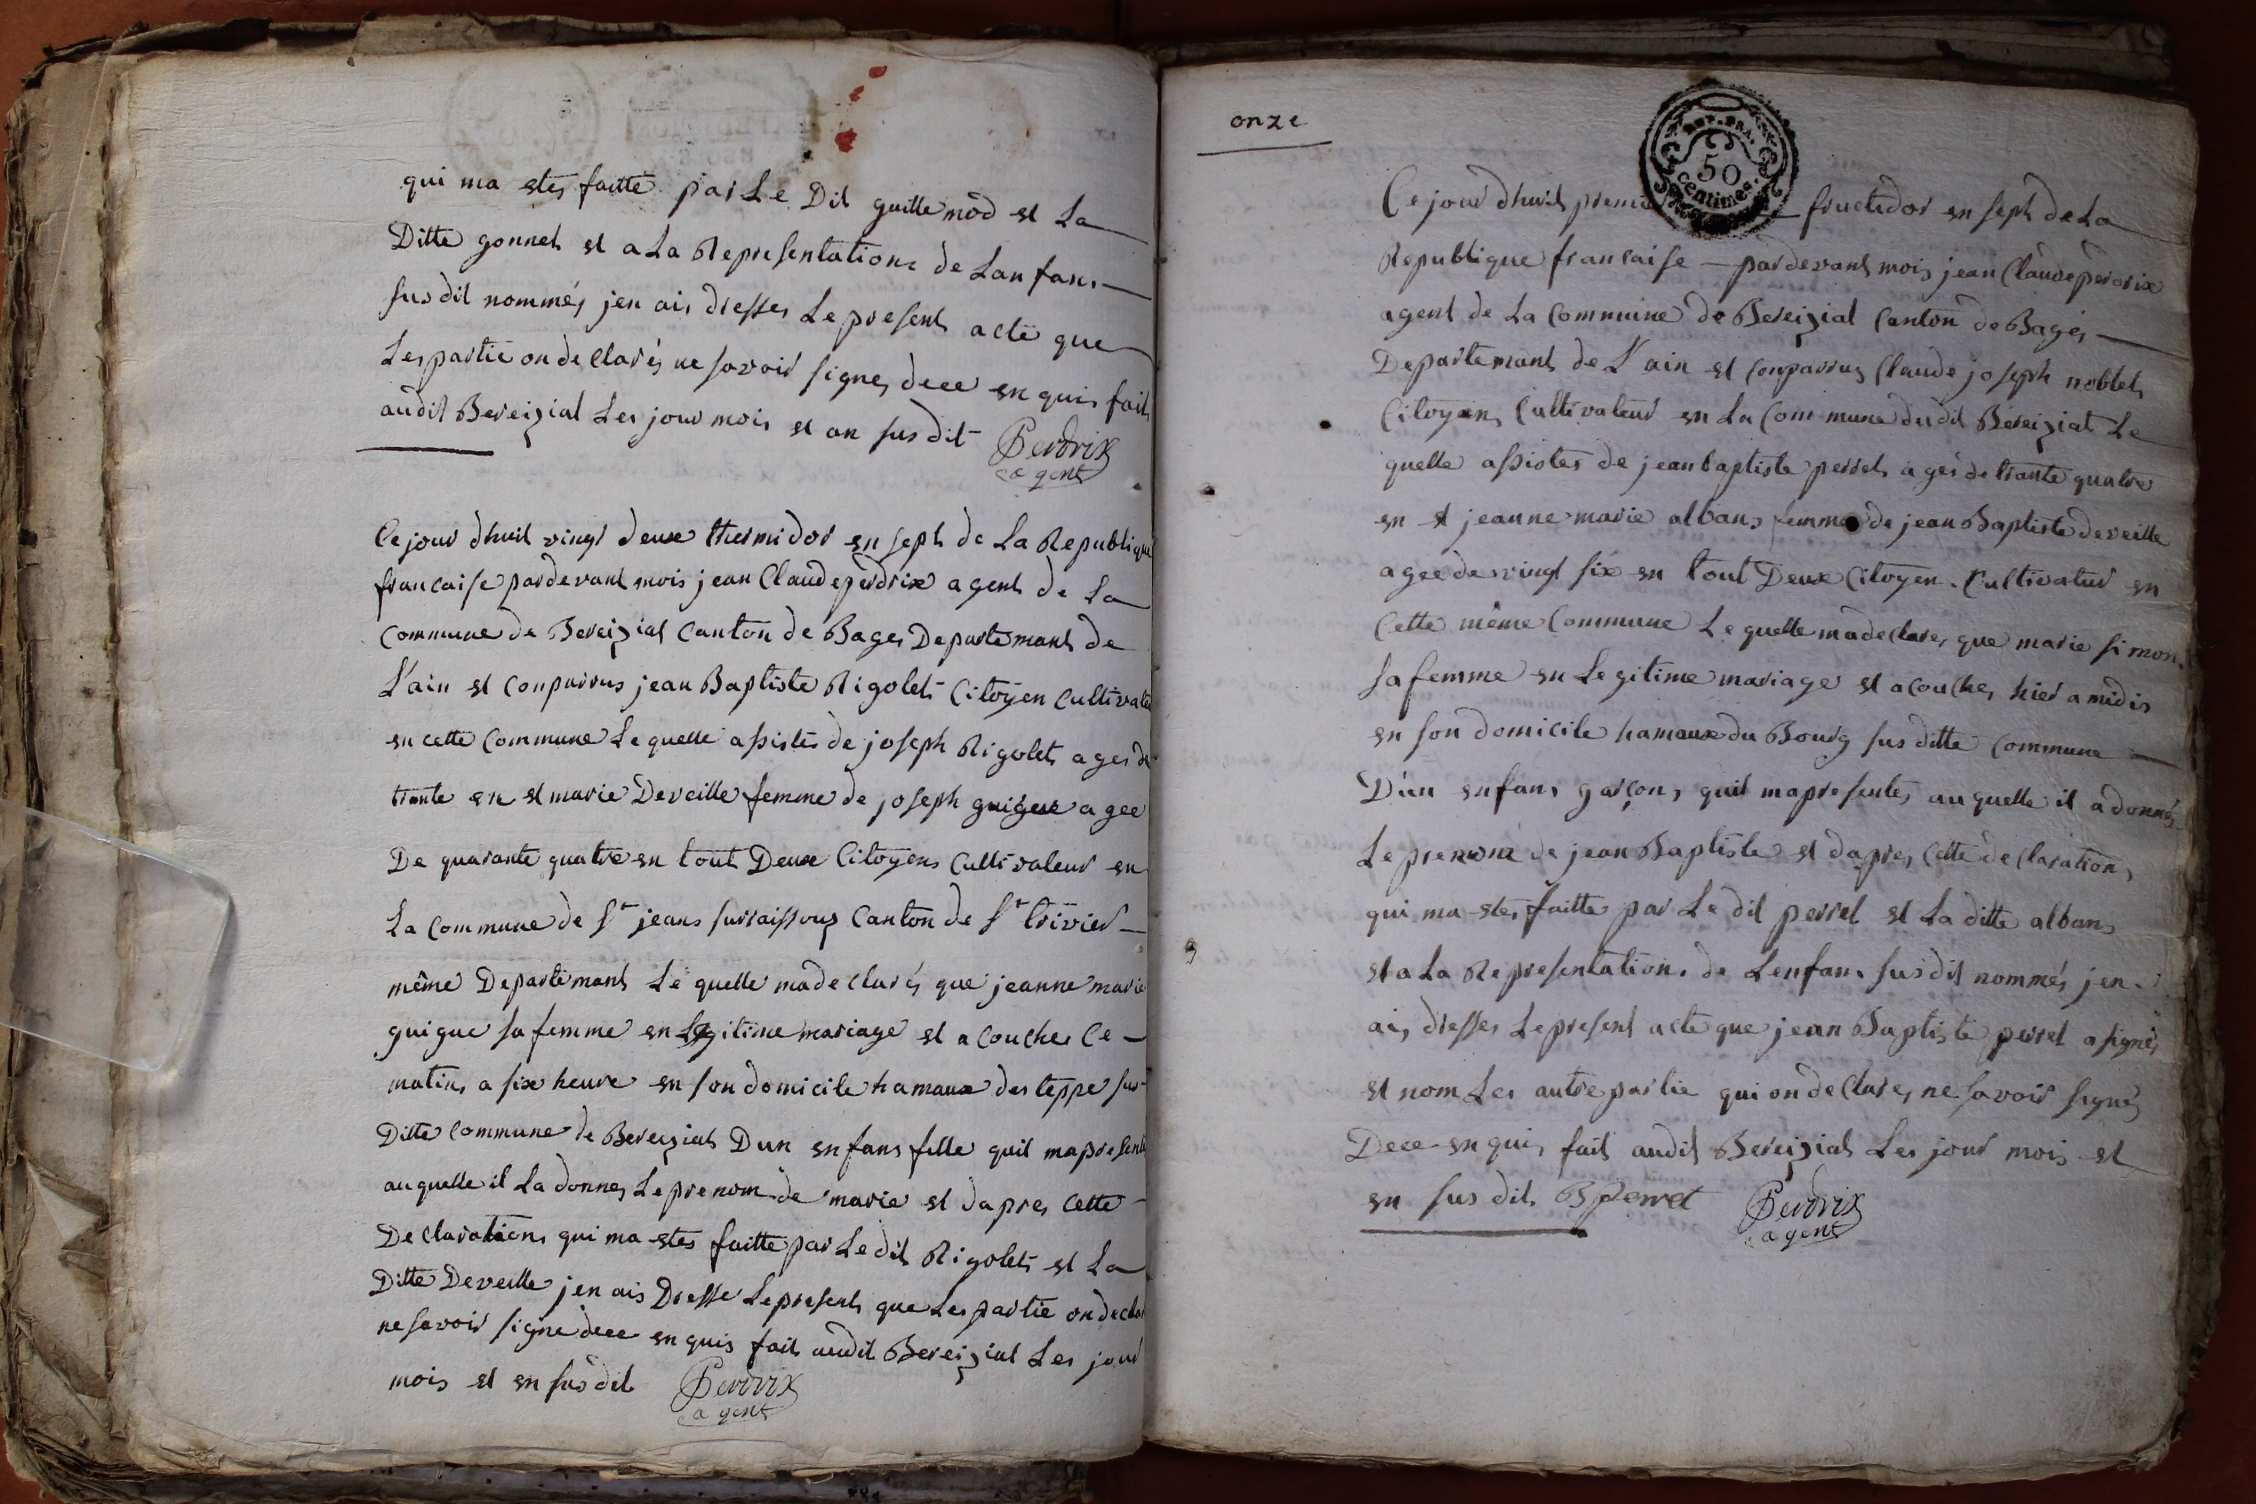 qui ma estes faitte par Le Dit guillemod et La
Ditte gonnet et a La Representation de Lanfans
susdit nommés jen ais dresser Le present acte que
Les partie on declarés ne savoir signes deee enquis fait
audit Bereizial Les jour mois et an susdit Perdrix
agent
Ce jour dhuit vingt deux thermidor en sept de La Republique
francaise pardevant mois jean Claude perdrix agent de La
commune de Bereizial Canton de Bages Departemant de
L'ain et conparrus jean Baptiste Rigolet Citoyen Cultivateu
en cette Commune Le quelle assistés de joseph Rigolet ages de
trante en et marie Deveille femme de joseph guigue agee
De quarante quatre en tout Deux Citoyens Cultivateur en
La Commune de St jeans surraissouz Canton de St trivier
même Departemant Le quelle ma declarés que jeanne marie
guigue sa femme en Legitime mariage et a coucher Ce
matins a six heure en son domicile hamaux des teppe sus
Ditte Commune de Bereizial Dun enfans fille quil mapresente
auquelle il La donnes Le prenom de marie et dapres Cette
Declarations qui ma estes faitte par Le dit Rigolet et La
Ditte Deveille jen ais Dresse Le present que Les partie on declar
ne savoir signe deee enquis fait audit Bereizial Les jour
mois et en susdit Perdrix
agent
onze
REP. FRA.
50
centimes
Ce jour dhuit premie fructidor en sept de La
Republique francaise pardevant mois jean Claude perdrix
agent de La Commune de Bereizial Canton de Bagés
Departemant de L'ain et Conparruz Claude joseph noblet
Citoyens Cultivateur en La Commune dudit Bereizial Le
quelle assistes de jean baptiste perret ages de trante quatre
en et jeanne marie albans femme de jean Baptiste deveille
agee de vingt six en tout Deux Citoyen Cultivatur en
Cette même Commune Le quelle ma declares que marie simon
sa femme en Legitime mariage et acouches hier a midis
en son domicile hamaux du Bourg susditte Commune
D'un enfans garçons quil mapresentes auquelle il a donnés
Le prenom de jean Baptiste et dapres Cette declarations
qui ma estes faitte par Le dit perret et La ditte albans
et a La Representation de Lenfans susdit nommés jen
ais dresser Le present acte que jean Baptiste perret a signés
et nom Les autre partie qui on declares ne savoir signés
Deee enquis fait audit Bereizial Les jour mois et
en susdit B perret Perdrix
agent